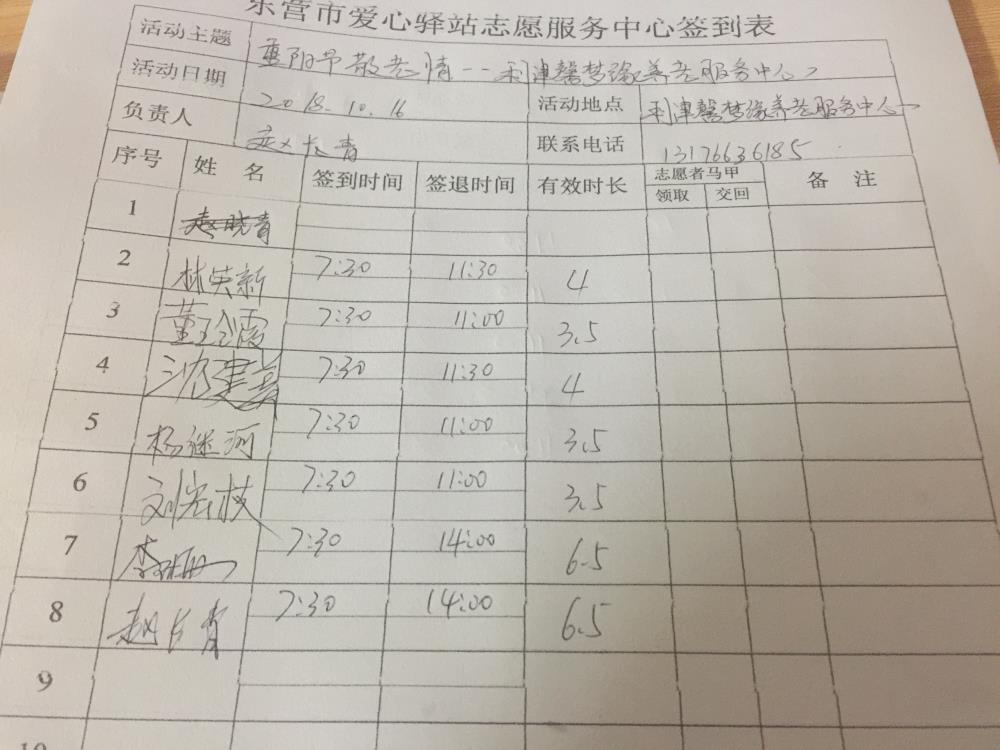 东营市爱心驿站志愿服务中心签到表
活动主题 重阳节敬老情--利津馨梦缘养老服务中心
活动日期 2018.10.16 活动地点 利津馨梦缘养老服务中心
负责人 赵长青 联系电话 13176636185
序号 姓 名 签到时间 签退时间 有效时长 志愿者马甲 备 注
领取 交回
1 赵晓青
2 林英新 7:30 11:30 4
3 董玉霞 7:30 11:00 3.5
4 7:30 11:30 4
5 杨继河 7:30 11:00 3.5
6 刘宏枝 7:30 11:00 3.5
7 李 7:30 14:00 6.5
8 赵长青 7:30 14:00 6.5
9
10